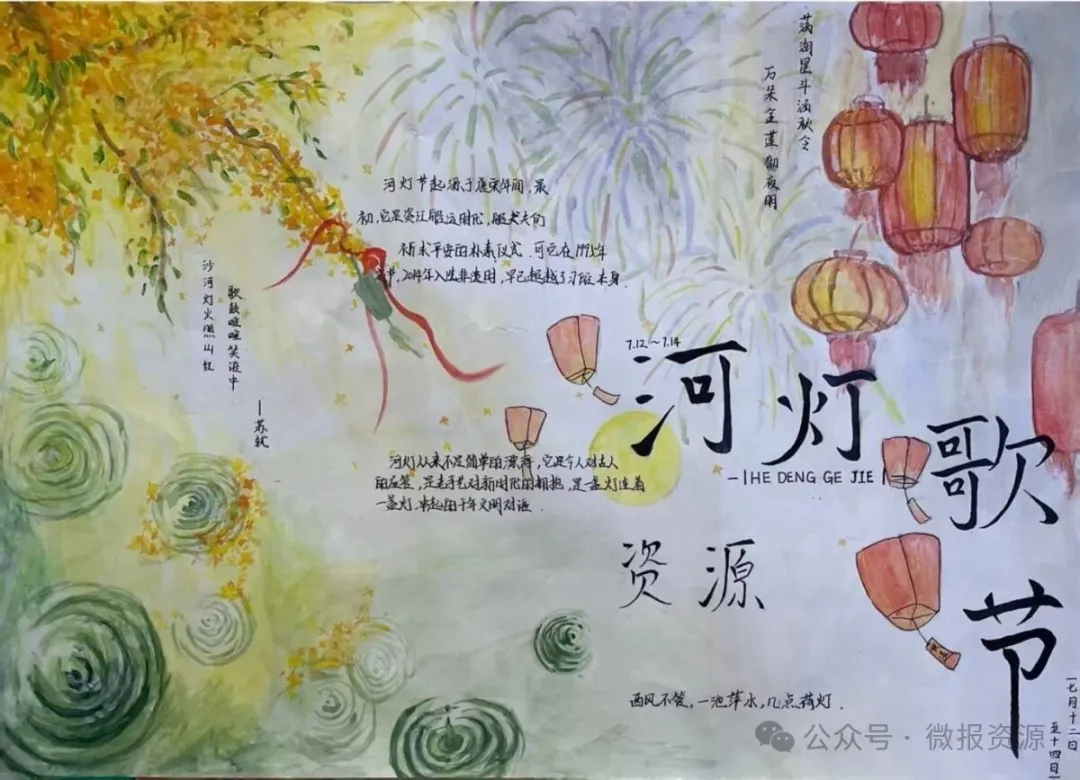 满湖星斗涵秋冷
万朵金莲彻夜明
河灯节起源于唐宋年间,最
初,它是资江船运时代,船夫们
祈求平安的朴素仪式.可它在1993年
,2014年入选非遗时,早已超越了习俗本身.
沙河灯火照山红
歌鼓喧喧笑语中
—苏轼
7.12.~7.14
河灯
歌
节
—|HE DENG GE JIE|
河灯从来不是简单的漂浮,它是今人对古人
的应答,是老手艺对新时代的拥抱,是一盏灯连着
一盏灯,串起的千年文明对话.
资源
西风不管,一池萍水,几点荷灯.
七月十二日
至十四日
公众号·微报资源